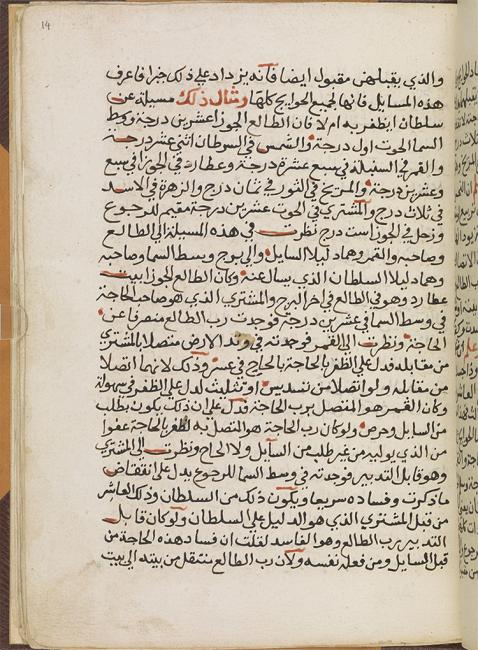 14
والذي يقبله هى مقبول ايضا فانه يزداد على ذلك خيرا فاعرف
هذه المسايل فانها لجميع الحوايج كلها ومثال ذلك مسيلة عن
سلطان ايظفر به ام لا فان الطالع الجوزا عشرين درجة ووسط
السما الحوت اول درجة والشمس في السرطان اثنى عشر درجة
والقمر في السنبلة في سبع عشرة درجة وعطارد في الجوزا في سبع
وعشرين درجة والمريخ في الثور في ثمان درج والزهرة في الاسد
في ثلاث درج والمشتري في الحوت عشرين درجة مقيم للرجوع
وزحل في الجوزا ست درج نظرت في هذه المسيلة الى الطالع
وصاحبه والقمر وهما دليلا السايل والى برج وسط السما وصاحبه
وهما دليلا السلطان الذي يسال عنه وكان الطالع الجوزا بيت
عطارد وهو في الطالع في اخر البرج والمشتري الذي هو صاحب الحاجة
في وسط السما في عشرين درجة فوجدت رب الطالع منصرفا عن
الحاجة ونظرت الى القمر فوجدته في وتد الارض متصلا بالمشتري
من مقابلة فدل على الظفر بالحاجة بالحاح في عسر وذلك لانهما اتصلا
من مقابلة ولو اتصلا من تسديس او تثليث لدل على الظفر في سهولة
وكان القمر هو المتصل برب الحاجة فدل على ان ذلك يكون بطلب
من السايل وحرص ولو كان رب الحاجة هو المتصل به لظفر بالحاجة عفوا
من الذي يوليه من غير طلب من السايل ولا الحاح ونظرت الى المشتري
وهو قابل التدبير فوجدته في وسط السما للرجوع يدل على انتقاض
ما ذكرت وفساده سريعا ويكون ذلك من السلطان وذلك العاشر
من قبل المشتري الذي هو الدليل على السلطان ولو كان قابل
التدبير رب الطالع وهو الفاسد لقلت ان فساد هذه الحاجة من
قبل السايل ومن فعله نفسه ولان رب الطالع منتقل من بيته الى بيت